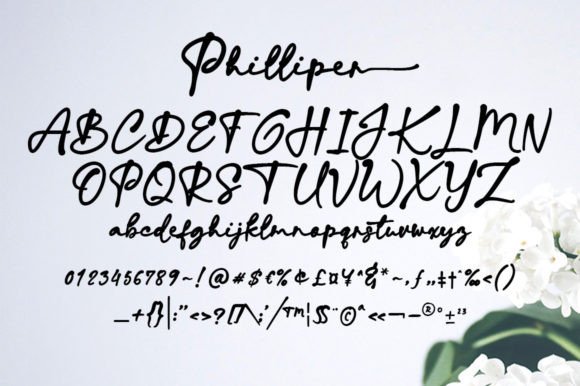 Philliper
ABCDEFGHIJKLMN
OPQRSTUVWXYZ
abcdefghijklmnopqrstuvwxyz
0123456789~!@#$€%¢£¤¥^&*~,ƒ„‡†ˆ‰<()
_+{}|:"<>?[]\;'/™¦§¨©ª«¬-®°±²³